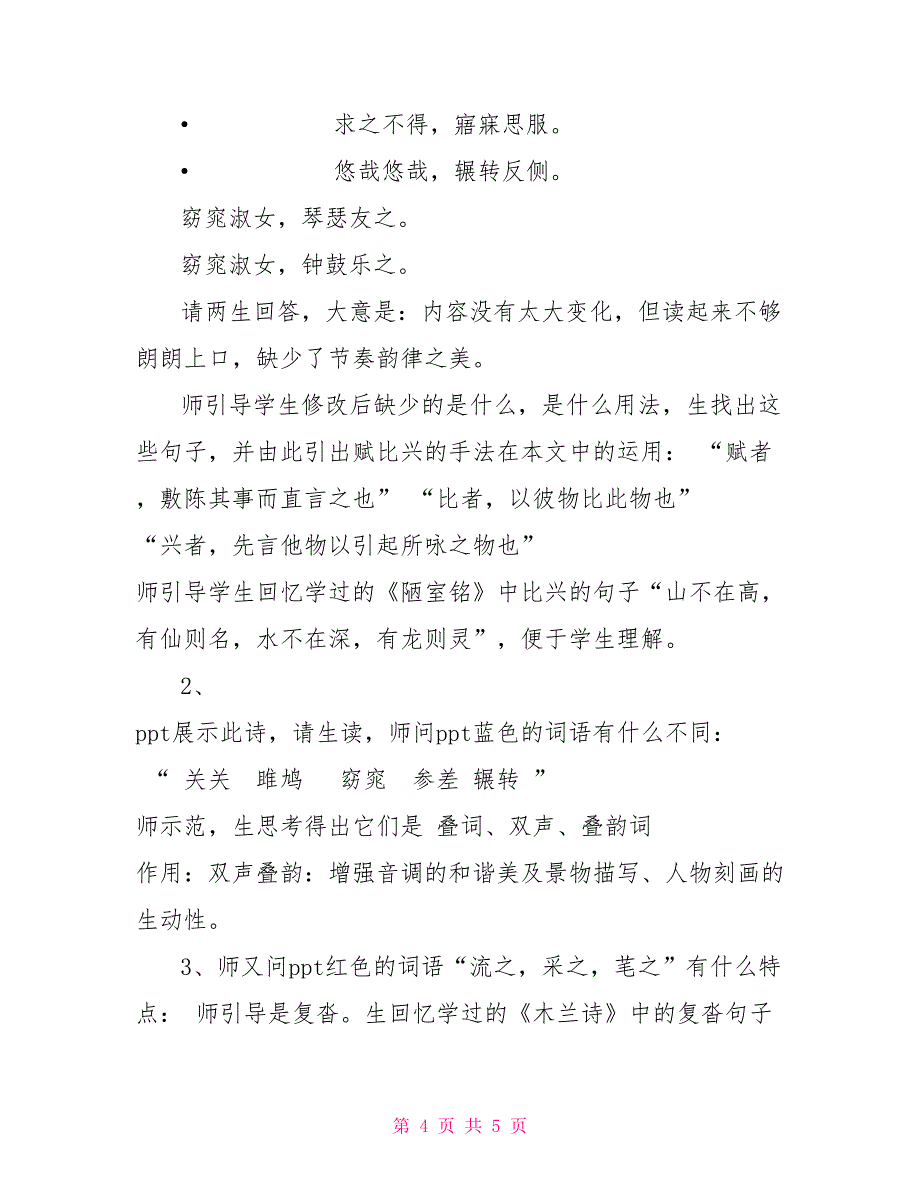 • 求之不得，寤寐思服。
• 悠哉悠哉，辗转反侧。
窈窕淑女，琴瑟友之。
窈窕淑女，钟鼓乐之。
请两生回答，大意是：内容没有太大变化，但读起来不够
朗朗上口，缺少了节奏韵律之美。
师引导学生修改后缺少的是什么，是什么用法，生找出这
些句子，并由此引出赋比兴的手法在本文中的运用： “赋者
，敷陈其事而直言之也” “比者，以彼物比此物也”
“兴者，先言他物以引起所咏之物也”
师引导学生回忆学过的《陋室铭》中比兴的句子“山不在高，
有仙则名，水不在深，有龙则灵”，便于学生理解。
2、
ppt展示此诗，请生读，师问ppt蓝色的词语有什么不同：
“ 关关 雎鸠 窈窕 参差 辗转 ”
师示范，生思考得出它们是 叠词、双声、叠韵词
作用：双声叠韵：增强音调的和谐美及景物描写、人物刻画的
生动性。
3、师又问ppt红色的词语“流之，采之，芼之”有什么特
点： 师引导是复沓。生回忆学过的《木兰诗》中的复沓句子
第 4 页 共 5 页